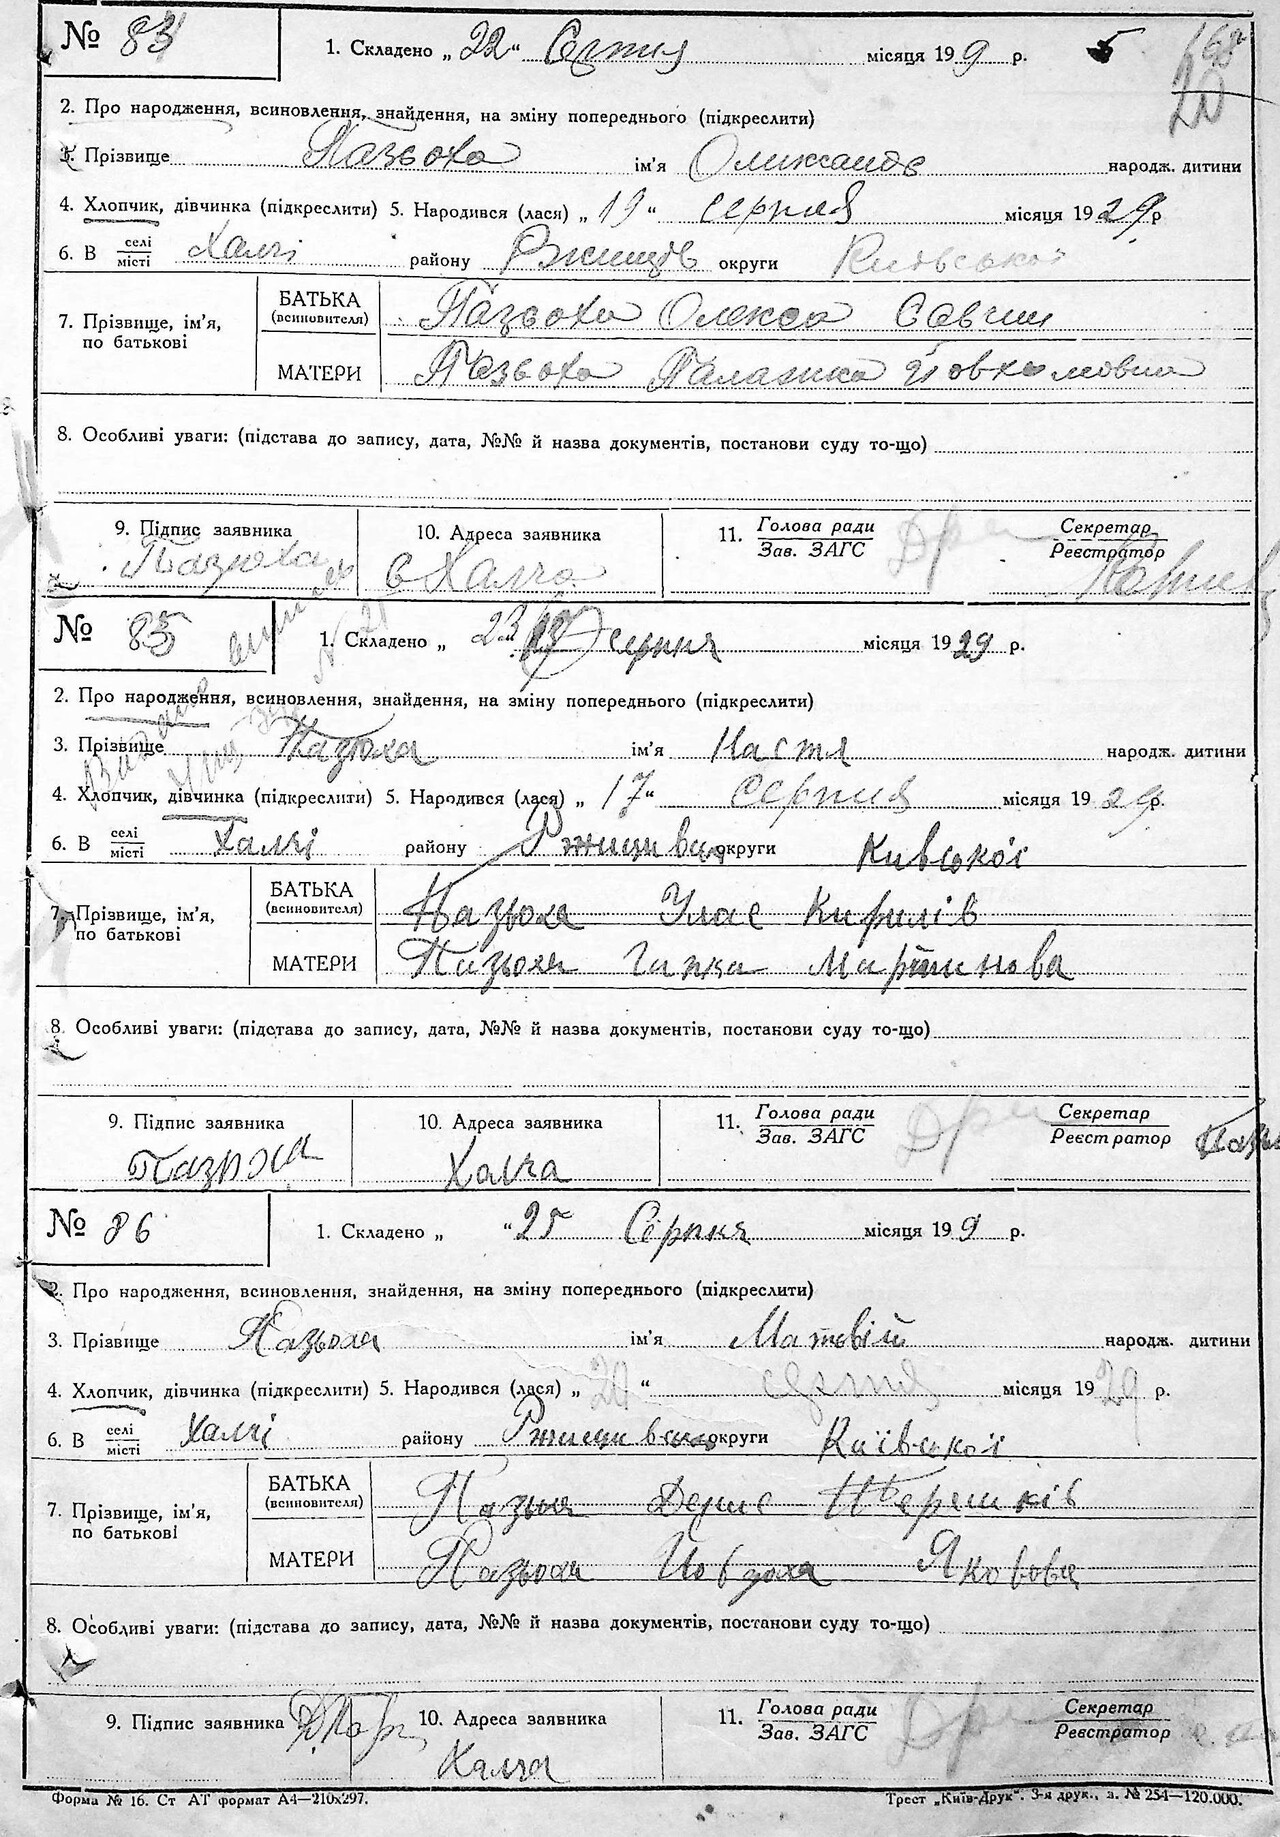 № 84 1. Складено „ 22 “ Серпня місяця 19 9 р. 5 168
20
2. Про народження, всиновлення, знайдення, на зміну попереднього (підкреслити)
3. Прізвище Пазьоха ім'я Оликсандр народж. дитини
4. Хлопчик, дівчинка (підкреслити) 5. Народився (лася) „ 19 “ серпня місяця 19 29 р
6. В селі/місті Халчі району Ржищів округи Київської
7. Прізвище, ім'я, по батькові БАТЬКА (всиновителя) Пазьоха Олекса Савчин
МАТЕРИ Пазьоха Палажка Йовхимовна
8. Особливі уваги: (підстава до запису, дата, №№ й назва документів, постанови суду то-що)
9. Підпис заявника 10. Адреса заявника 11. Голова ради/Зав. ЗАГС Секретар/Реєстратор
Пазюха с Халча
№ 85 1. Складено „ 23 серпня місяця 19 29 р.
2. Про народження, всиновлення, знайдення, на зміну попереднього (підкреслити)
3. Прізвище Пазюха ім'я Настя народж. дитини
4. Хлопчик, дівчинка (підкреслити) 5. Народився (лася) „ 17 “ серпня місяця 19 29 р.
6. В селі/місті Халчі району Ржищивськ округи Кивської
7. Прізвище, ім'я, по батькові БАТЬКА (всиновителя) Пазьоха Улас Кирилів
МАТЕРИ Пазьоха Гапка Мартинова
8. Особливі уваги: (підстава до запису, дата, №№ й назва документів, постанови суду то-що)
9. Підпис заявника 10. Адреса заявника 11. Голова ради/Зав. ЗАГС Секретар/Реєстратор
Пазюха Халча
№ 86 1. Складено „ “ 25 Серпня місяця 19 9 р.
2. Про народження, всиновлення, знайдення, на зміну попереднього (підкреслити)
3. Прізвище Пазьоха ім'я Матвій народж. дитини
4. Хлопчик, дівчинка (підкреслити) 5. Народився (лася) „ 20 “ серпня місяця 19 29 р.
6. В селі/місті Халчі району Ржищивськ округи Київської
7. Прізвище, ім'я, по батькові БАТЬКА (всиновителя) Пазьоха Денис
МАТЕРИ Пазьоха Йовдоха Яковова
8. Особливі уваги: (підстава до запису, дата, №№ й назва документів, постанови суду то-що)
9. Підпис заявника 10. Адреса заявника 11. Голова ради/Зав. ЗАГС Секретар/Реєстратор
Халча
Форма № 16. Ст АТ формат А4—210х297. Трест „Київ-Друк“. 3-я друк., з. № 254—120.000.